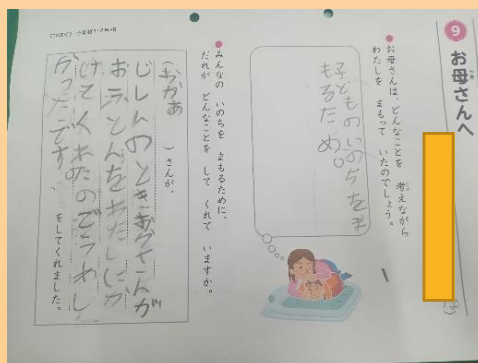 9 お母さんへ
● お母さんは、どんなことを 考えながら
わたしを まもって いたのでしょう。
子どものいのちをま
もるため。
● みんなの いのちを まもるために、
だれが どんなことを して くれて いますか。
(おかあ )さんが、
じしんのときおかさんが
おふとんをわたしにか
けてくれたのでうれし
かったです。
をしてくれました。